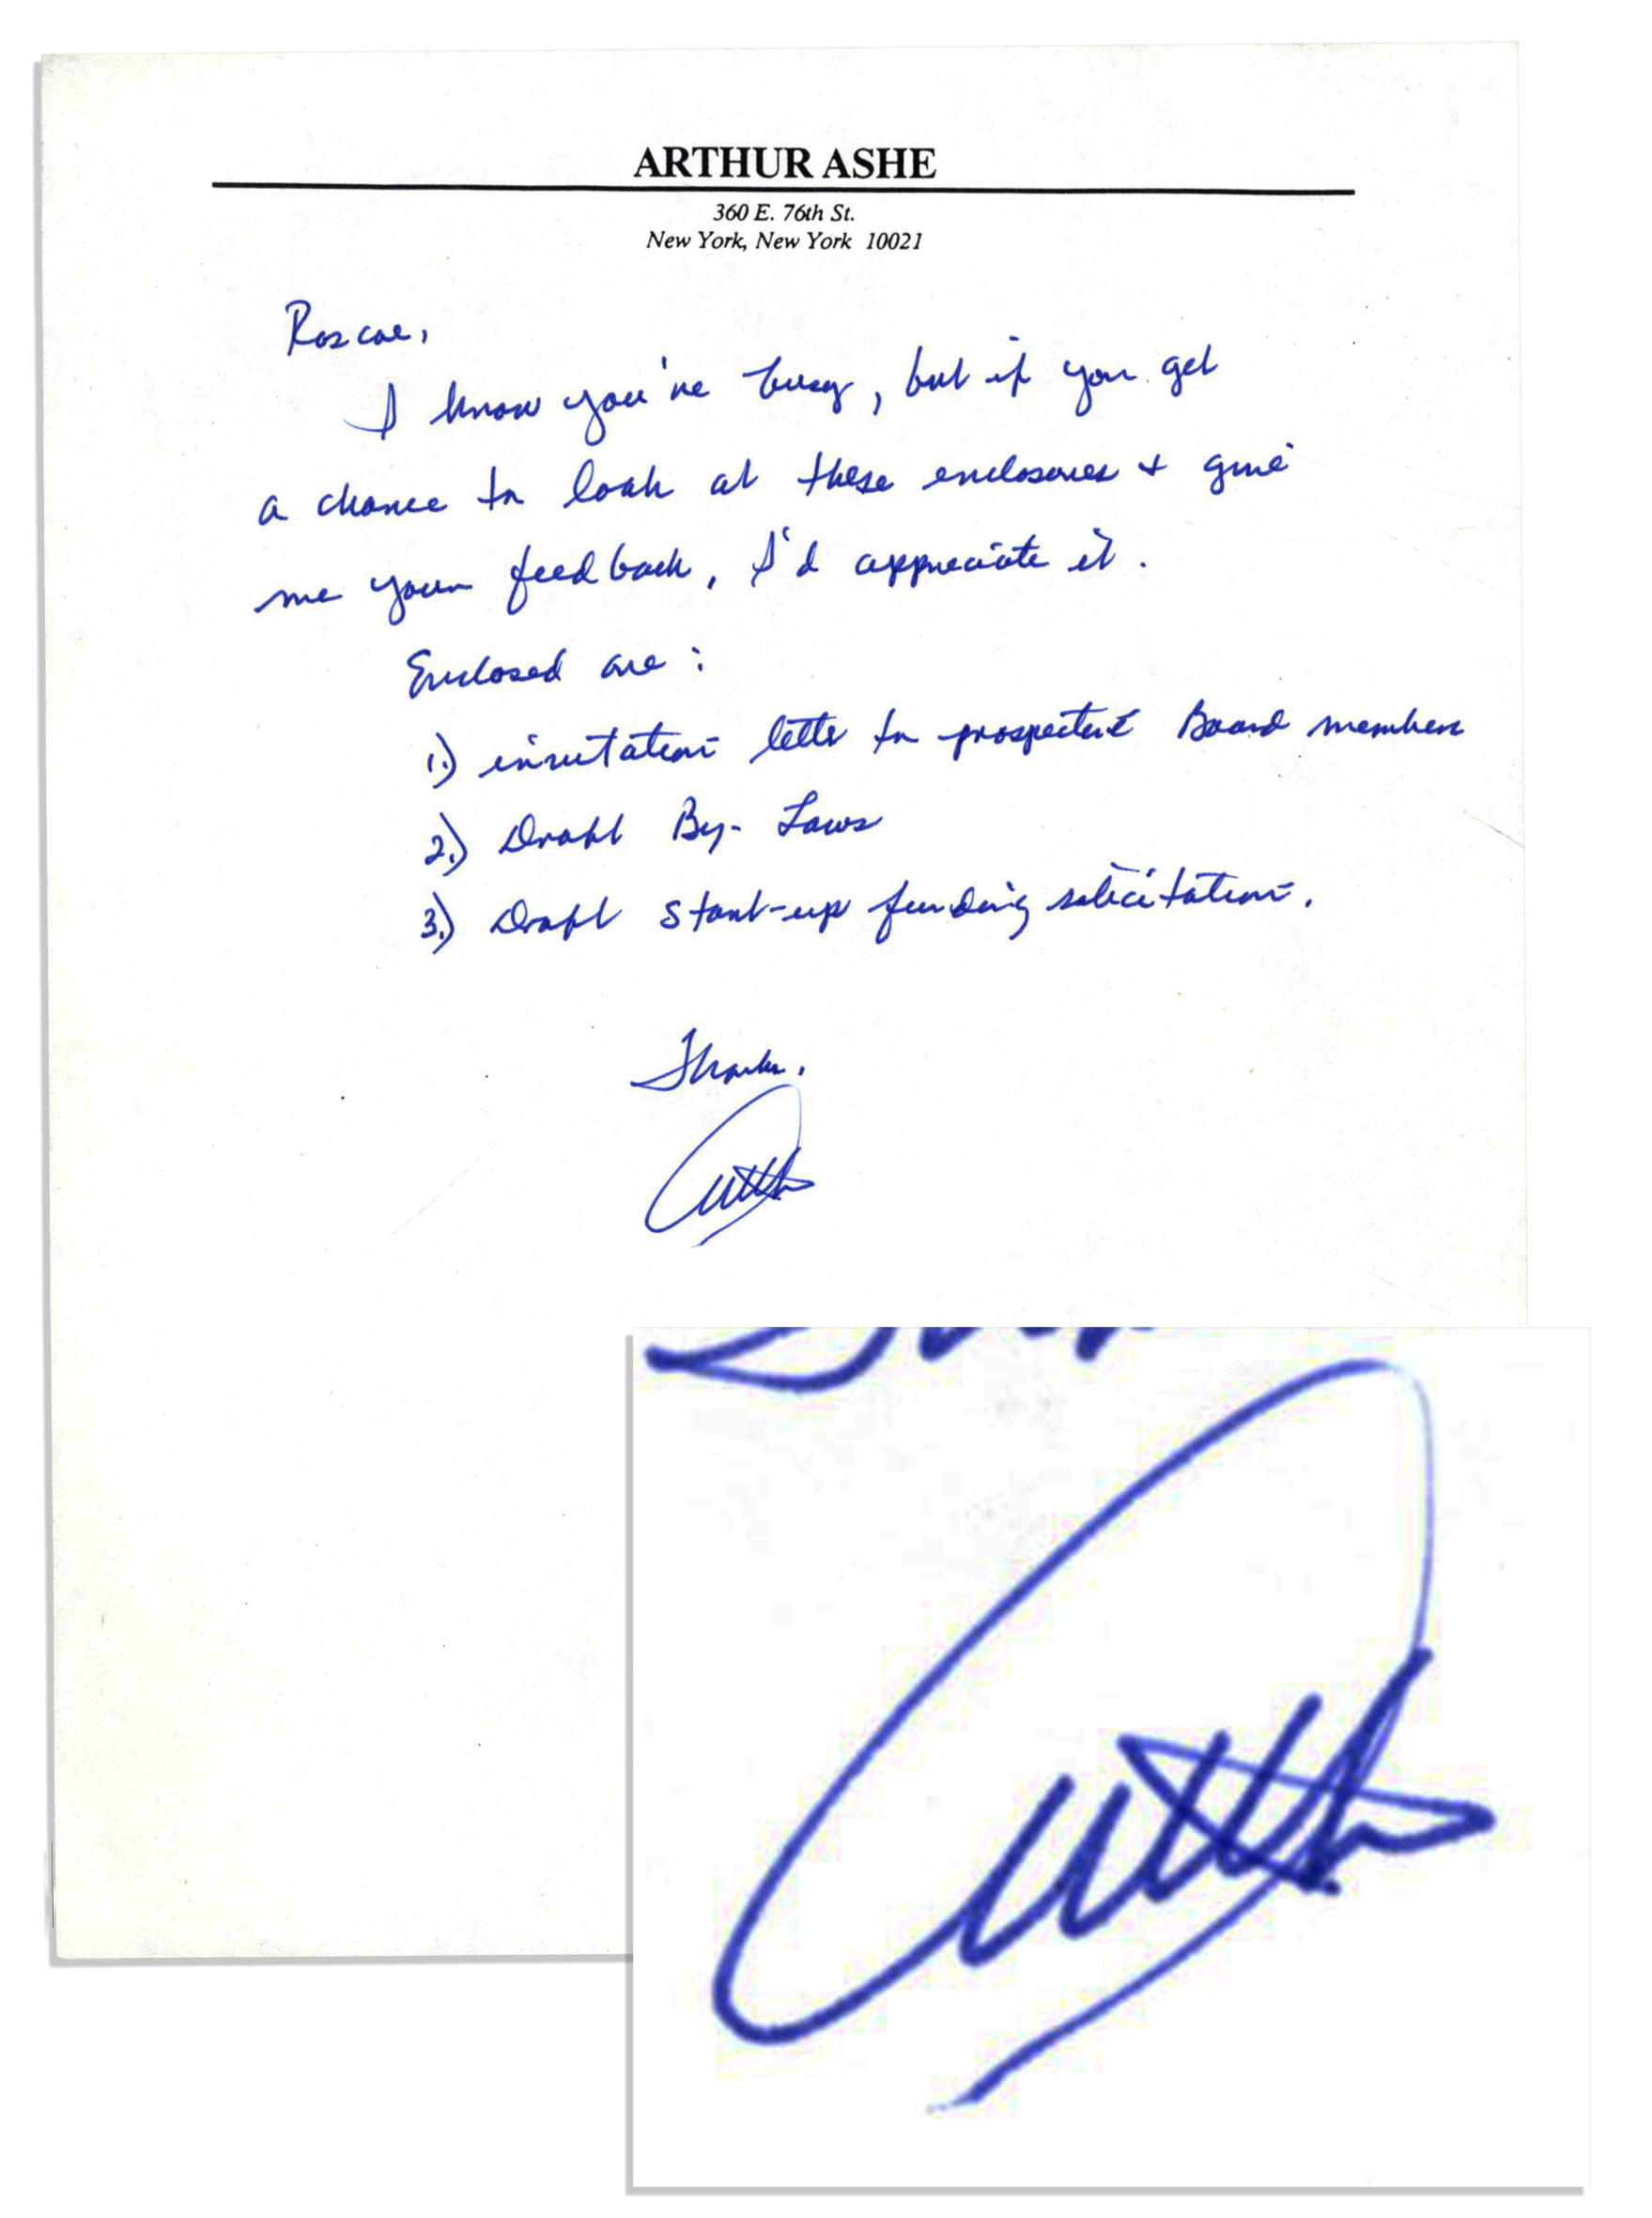 ARTHUR ASHE
360 E. 76th St.
New York, New York 10021
Roscoe,
I know you've busy, but if you get
a chance to look at these enclosures + give
me your feedback, I'd appreciate it.
Enclosed are:
1.) invitation letter to prospective Board members
2.) Draft By-Laws
3.) Draft start-up funding solicitation.
Thanks,
Arthur
Arthur